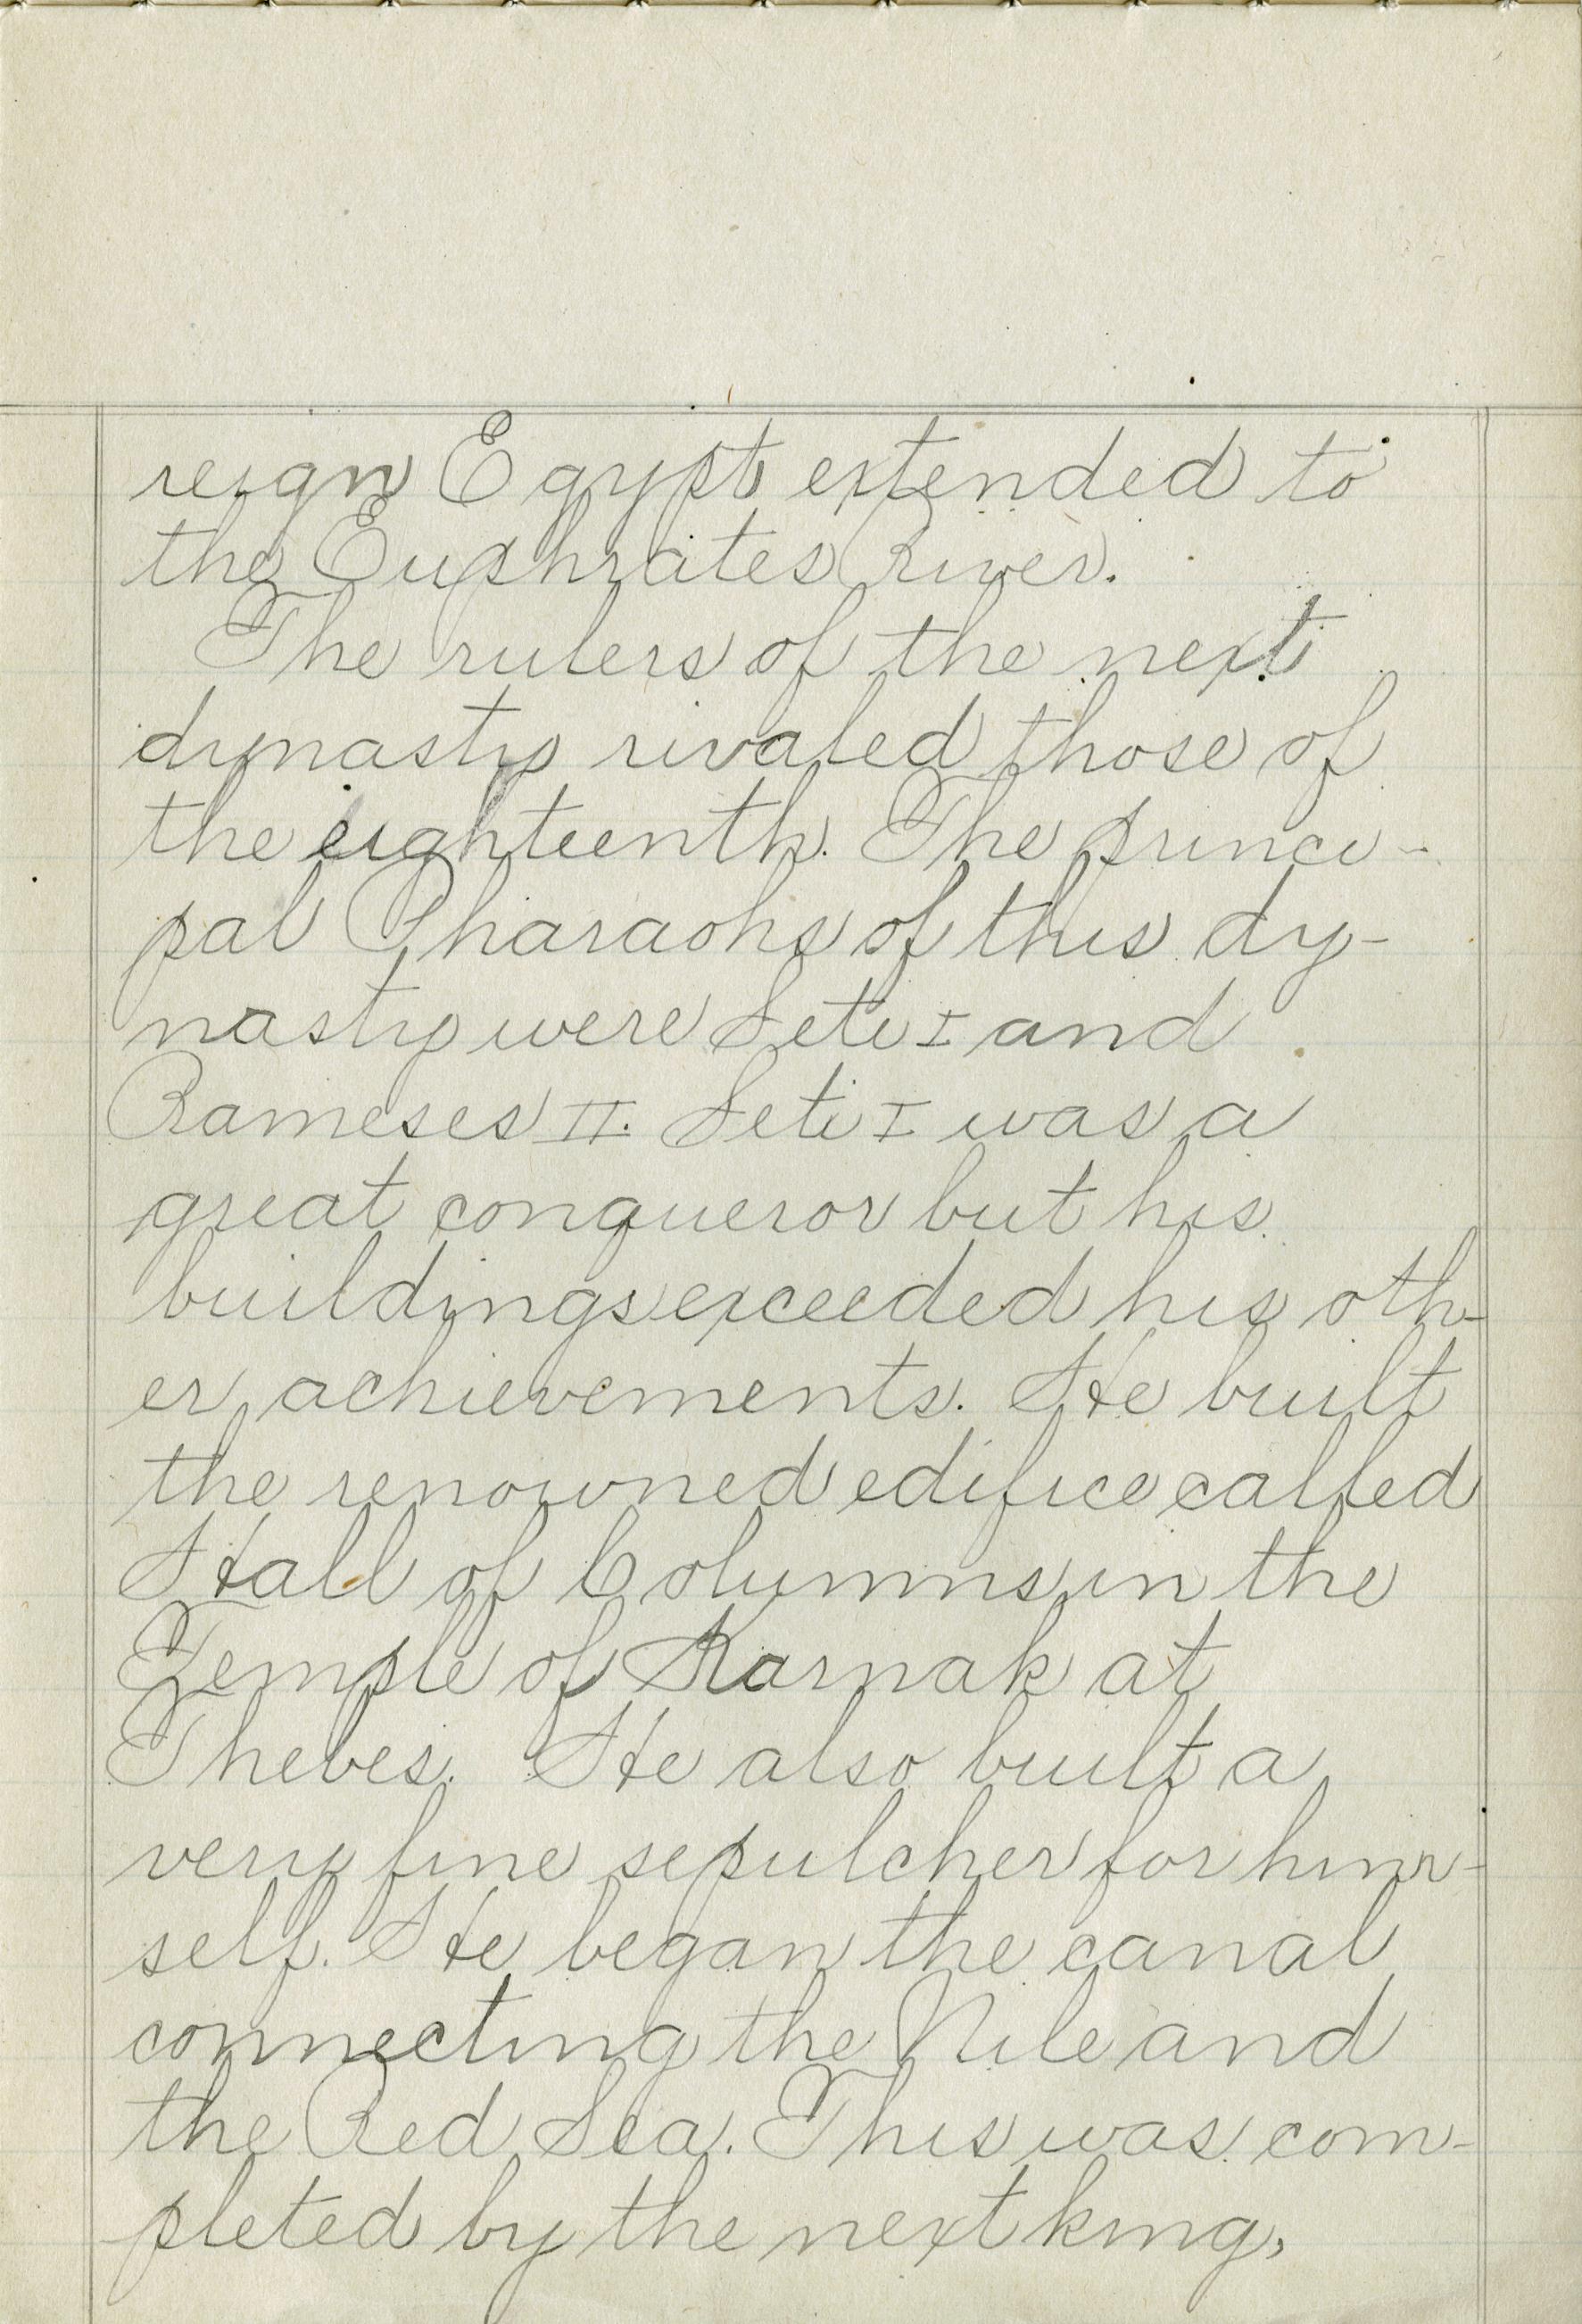 reign Egypt extended to
the Euphrates River.
The rulers of the next
dynasty rivaled those of
the eighteenth. The princi-
pal Pharaohs of this dy-
nasty were Seti I and
Rameses II. Seti I was a
great conqueror but his
buildings exceeded his oth-
er achievements. He built
the renowned edifice called
Hall of Columns in the
Temple of Karnak at
Thebes. He also built a
very fine sepulcher for him-
self. He began the canal
connecting the Nile and
the Red Sea. This was com-
pleted by the next king,